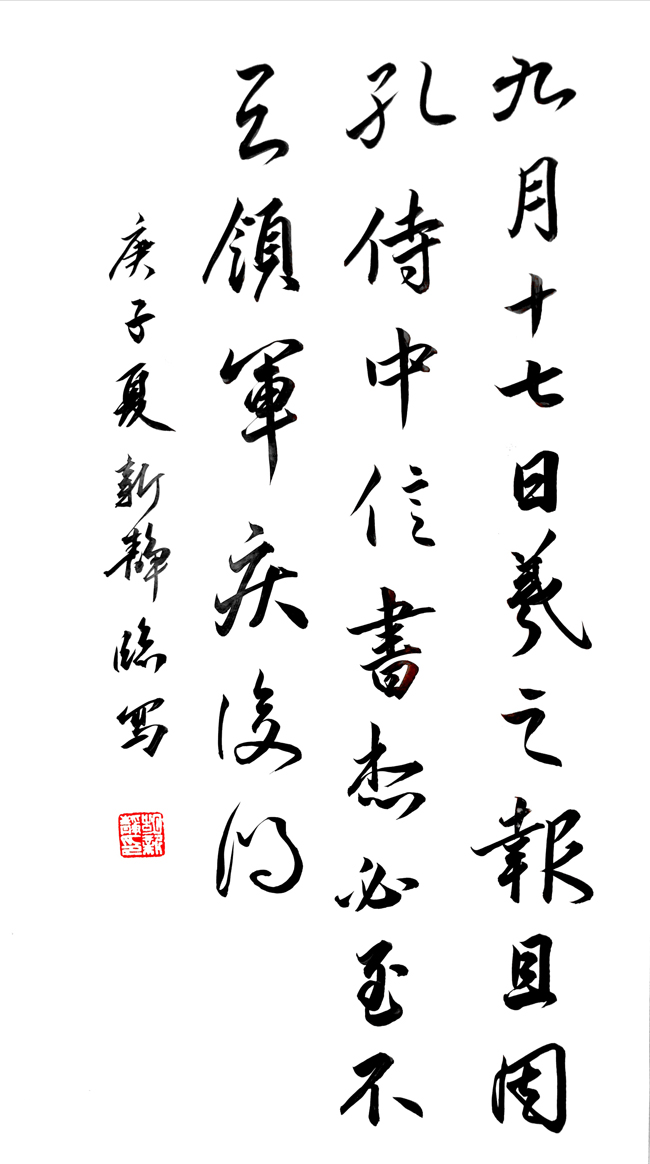 九月十七日羲之報且因
孔侍中信書想必至不
知領軍疾後問
庚子夏新静臨写